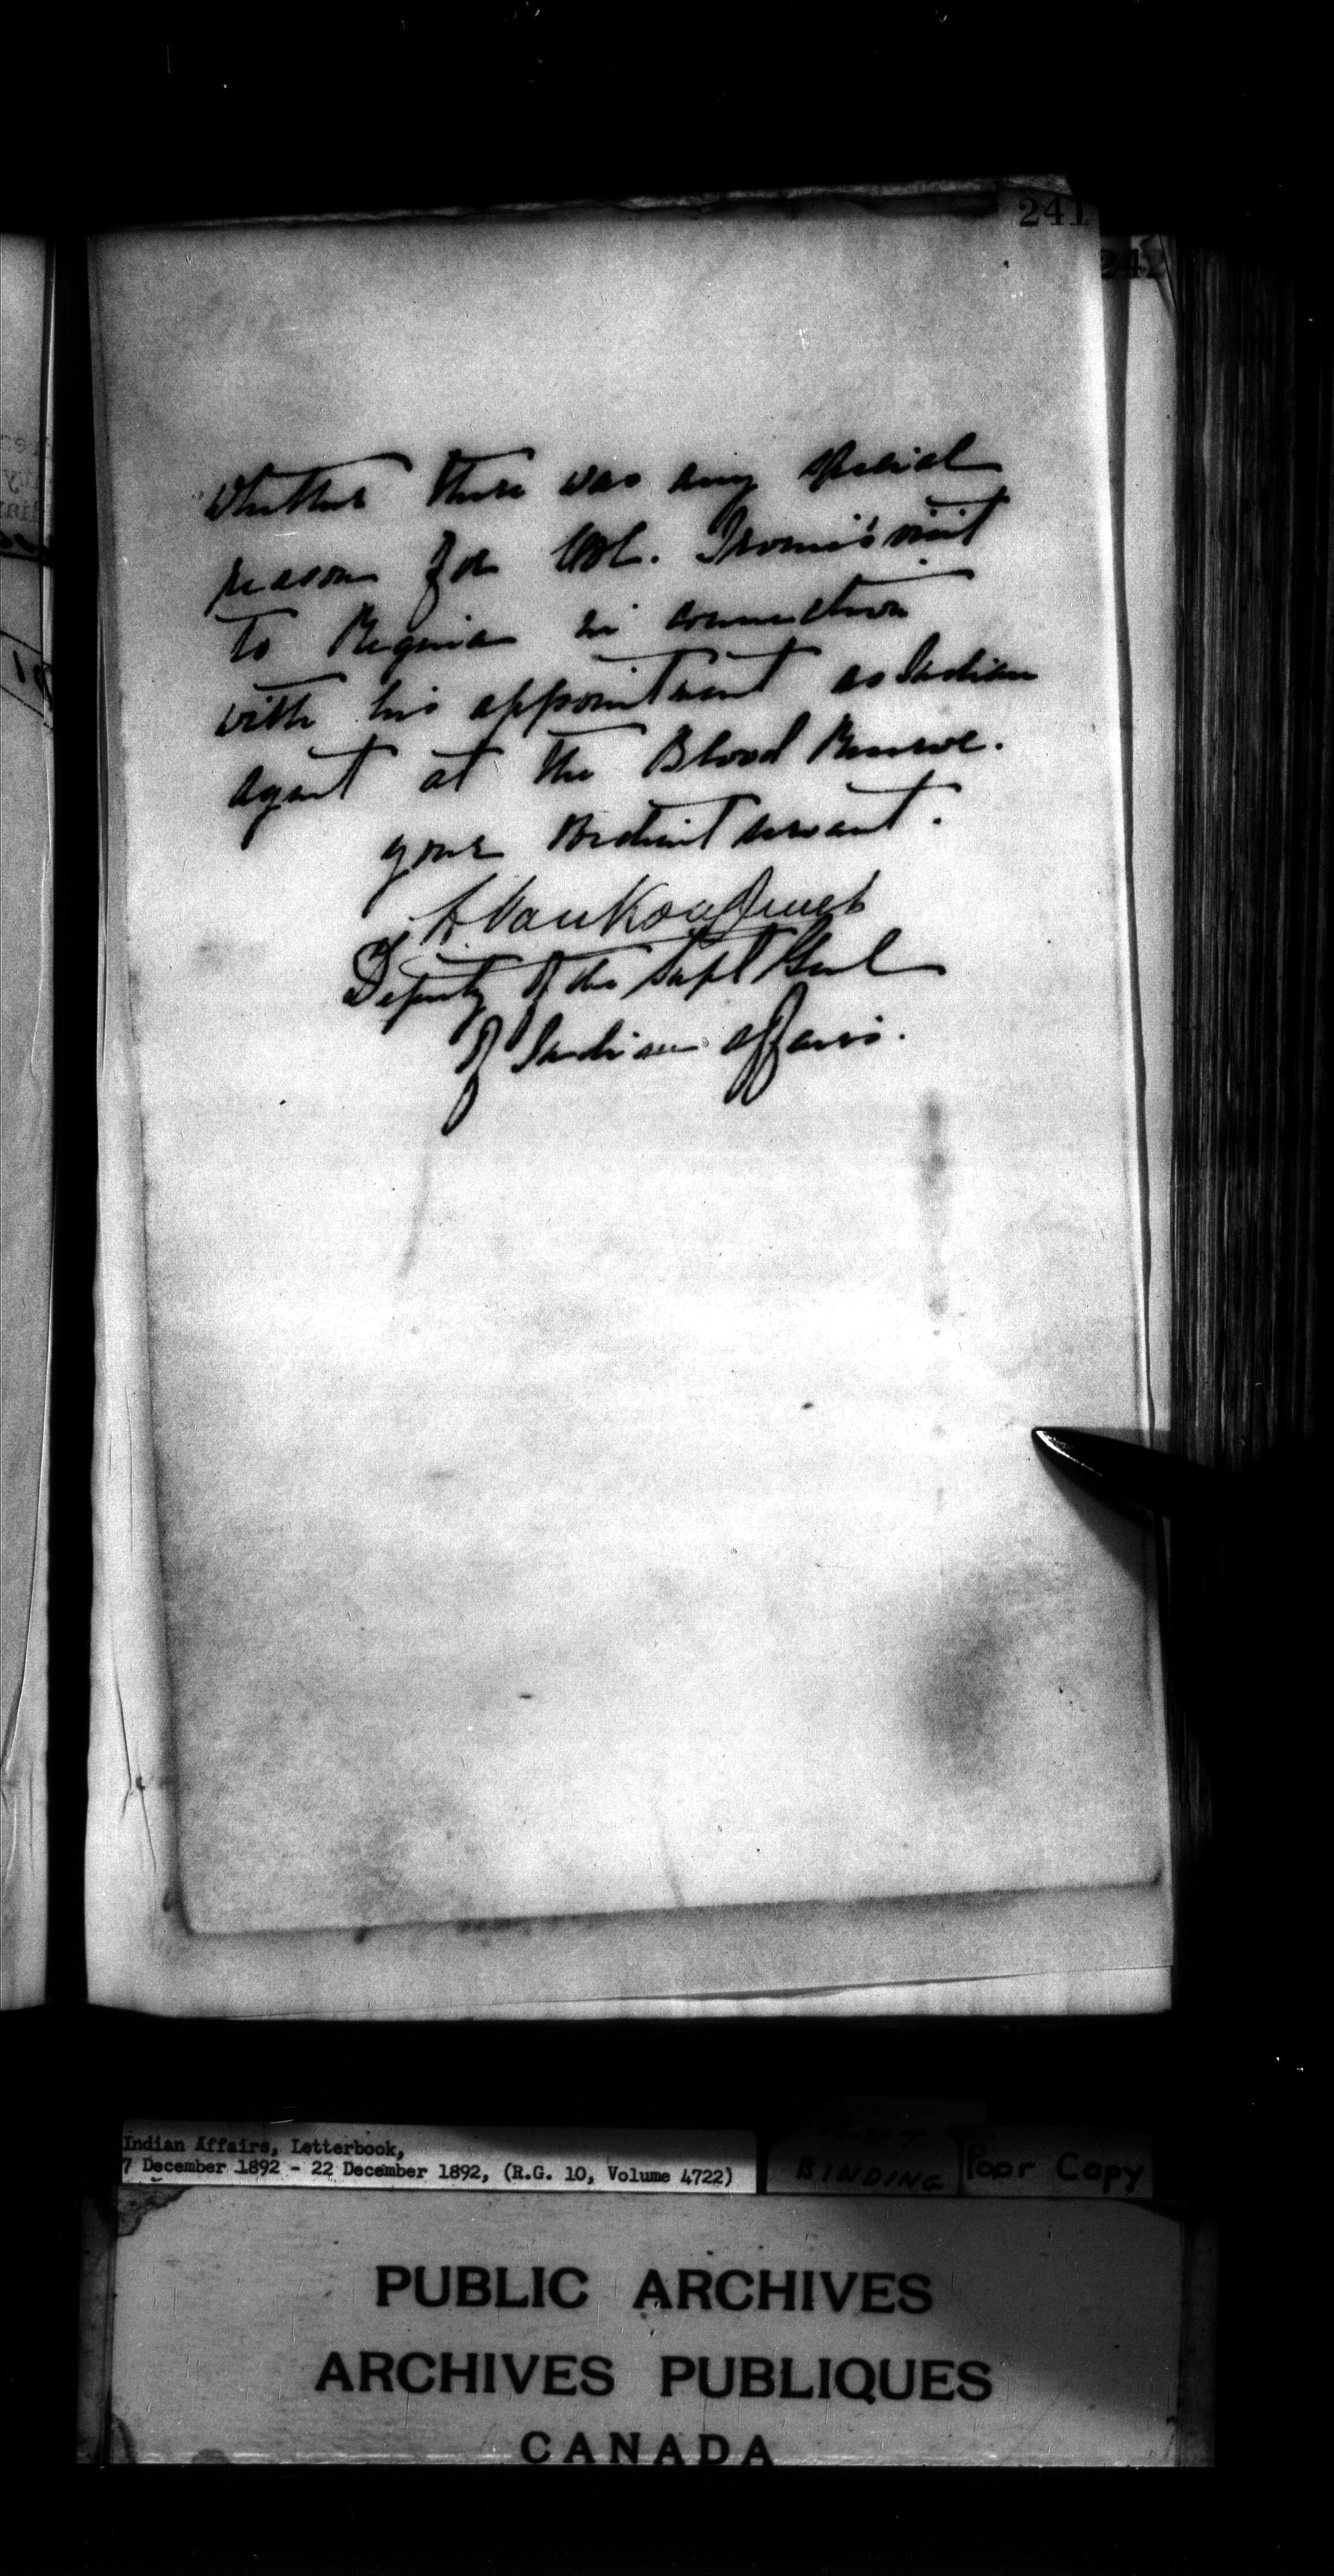 241
242
whether there was any special
reason for Col. Irvine's visit
to Regina in connection
with his appointment as Indian
agent at the Blood Reserve.
your obedient servant.
L. VanKoughnet
Deputy of the Supt Genl
of Indian affairs.
Indian Affairs, Letterbook,
7 December 1892 - 22 December 1892, (R.G. 10, Volume 4722)
BINDING
Poor Copy
PUBLIC ARCHIVES
ARCHIVES PUBLIQUES
CANADA